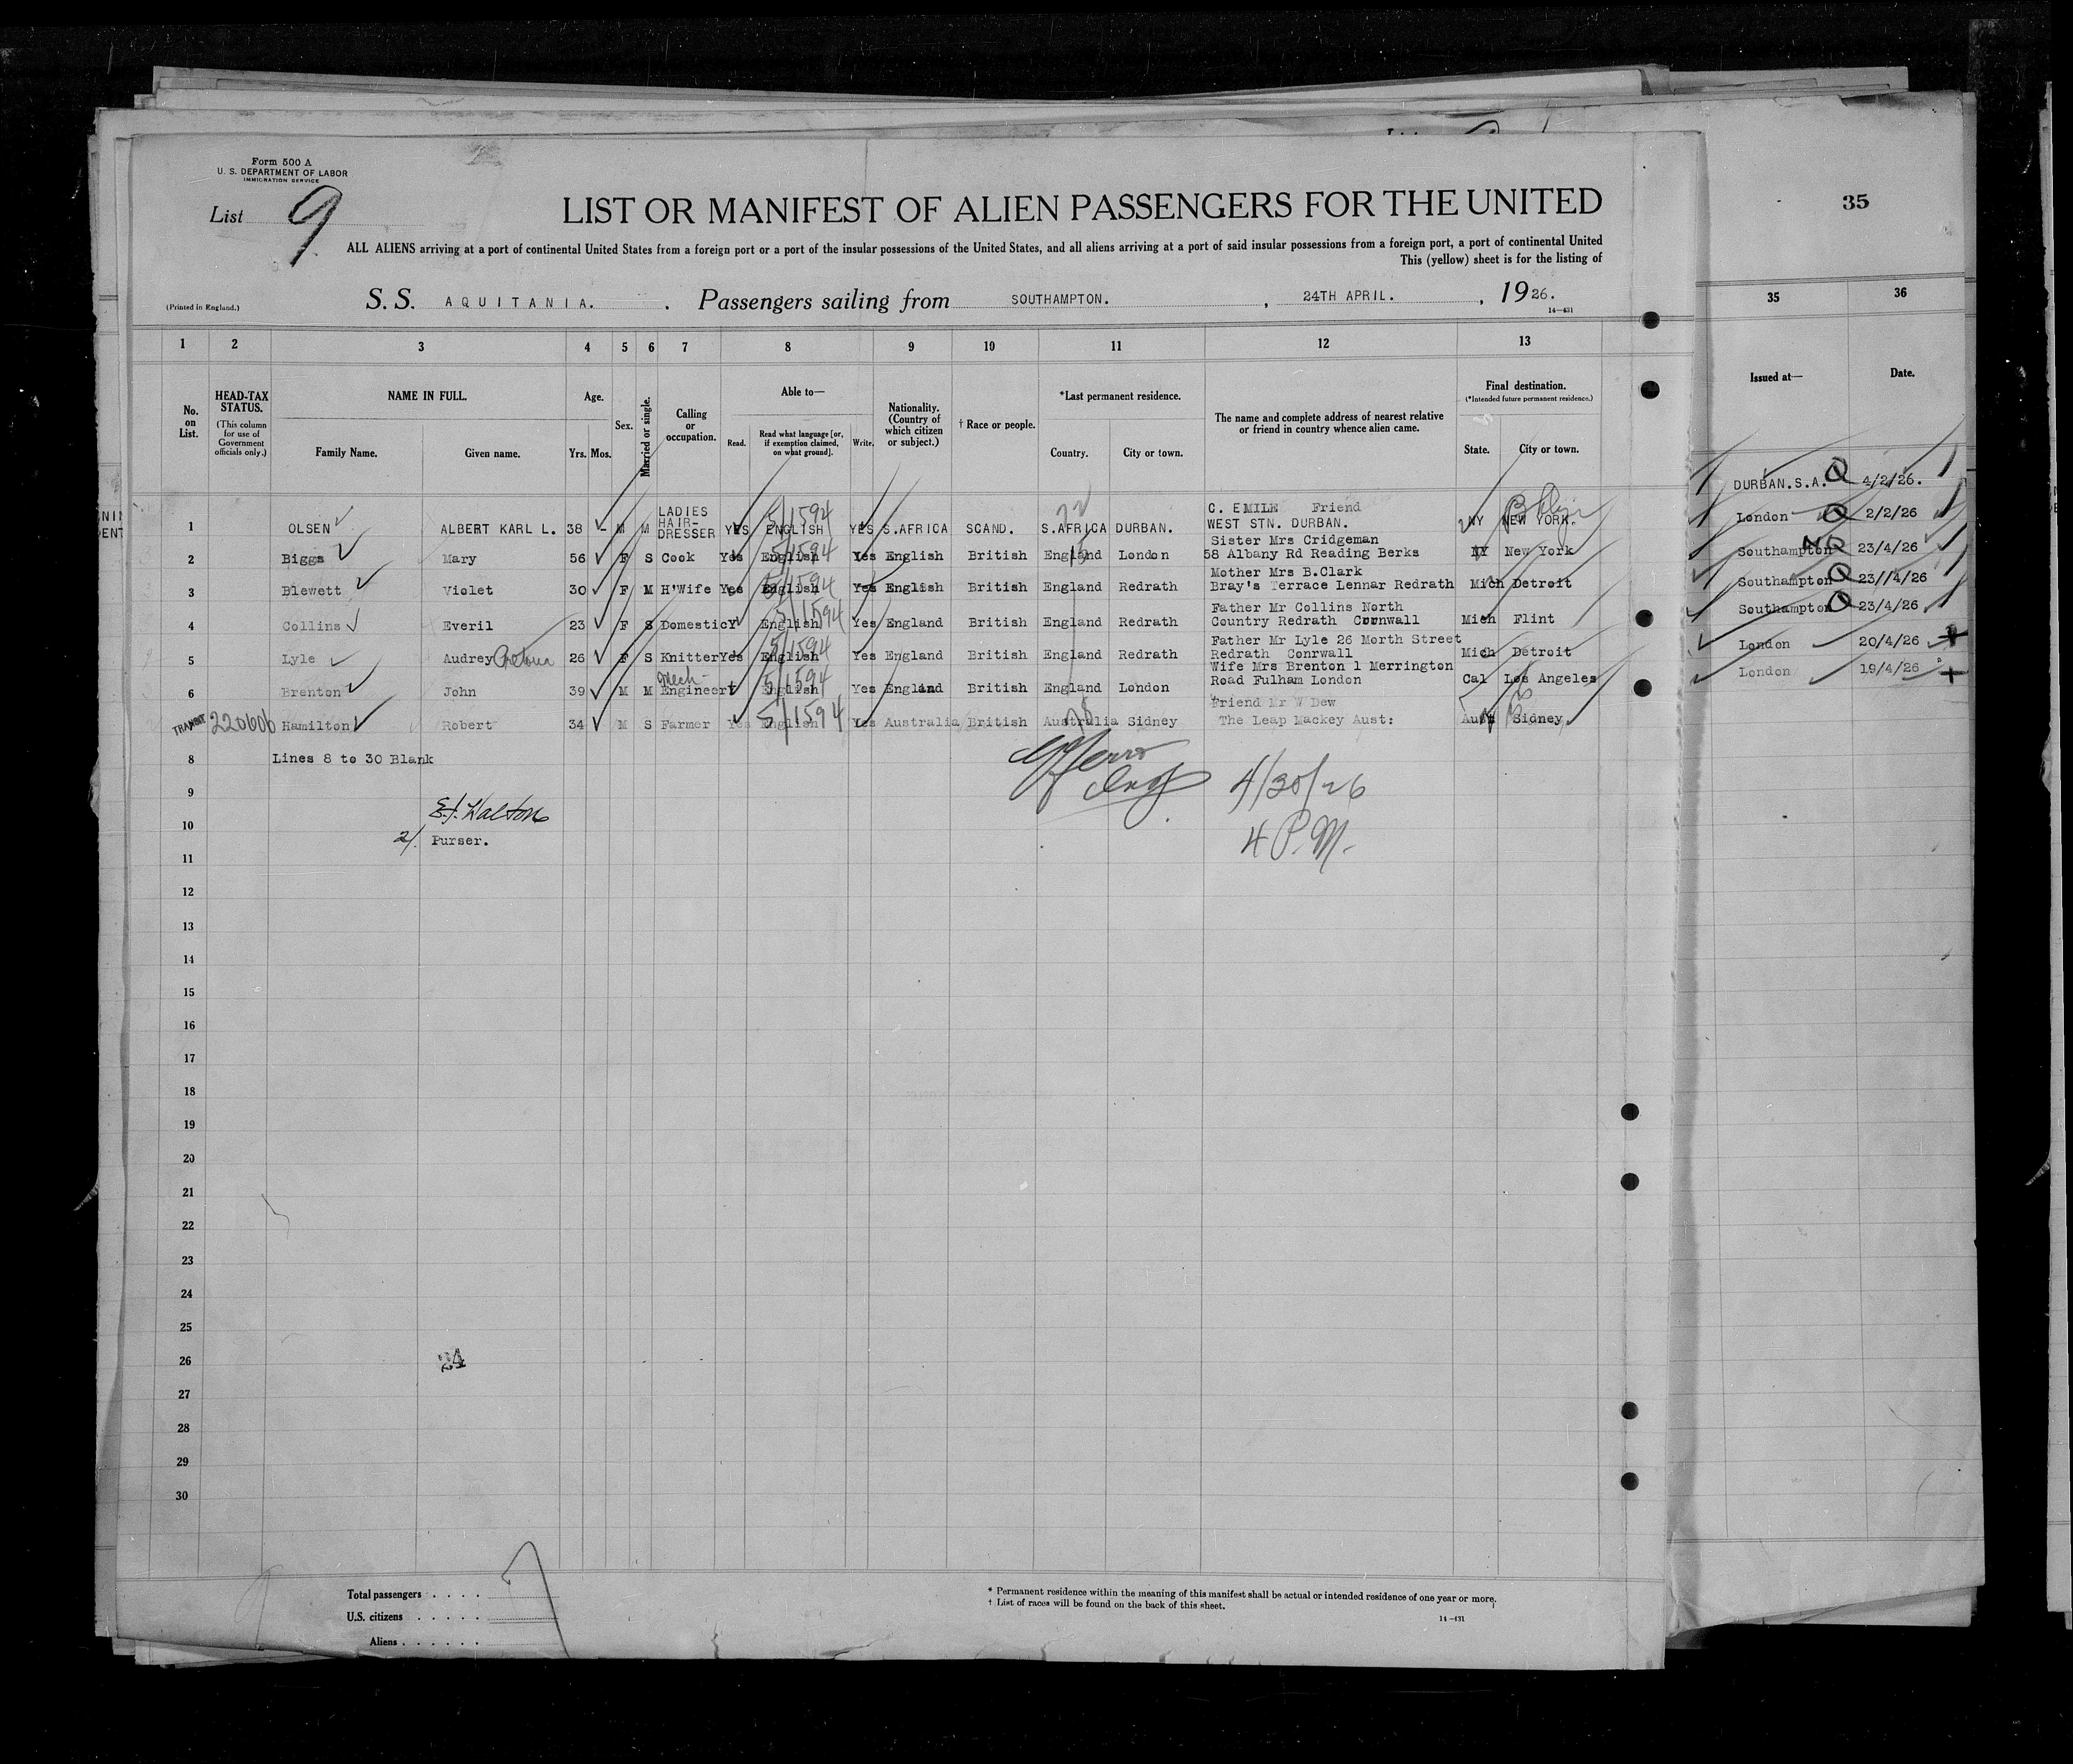 Form 500 A
U. S. DEPARTMENT OF LABOR
IMMIGRATION SERVICE
List 9
LIST OR MANIFEST OF ALIEN PASSENGERS FOR THE UNITED
35
ALL ALIENS arriving at a port of continental United States from a foreign port or a port of the insular possessions of the United States, and all aliens arriving at a port of said insular possessions from a foreign port, a port of continental United
This (yellow) sheet is for the listing of
(Printed in England.)
S. S. AQUITANIA. . Passengers sailing from SOUTHAMPTON. , 24TH APRIL. , 1926.
14—431
1 2 3 4 5 6 7 8 9 10 11 12 13 35 36
No. on List.
HEAD-TAX STATUS.
(This column for use of Government officials only.)
NAME IN FULL.
Family Name. Given name.
Age.
Yrs. Mos.
Sex.
Married or single.
Calling or occupation.
Able to—
Read. Read what language [or, if exemption claimed, on what ground]. Write.
Nationality. (Country of which citizen or subject.)
† Race or people.
*Last permanent residence.
Country. City or town.
The name and complete address of nearest relative or friend in country whence alien came.
Final destination.
(*Intended future permanent residence.)
State. City or town.
Issued at— Date.
1 OLSEN ALBERT KARL L. 38 - M M LADIES HAIR-DRESSER YES ENGLISH 5/1594 YES S.AFRICA SCAND. S.AFRICA DURBAN. C. EMILE Friend WEST STN. DURBAN. NY NEW YORK. DURBAN.S.A. Q 4/2/26.
2 Biggs Mary 56 F S Cook Yes English 5/1594 Yes English British England London Sister Mrs Cridgeman 58 Albany Rd Reading Berks NY New York London Q 2/2/26
3 Blewett Violet 30 F M H'Wife Yes English 5/1594 Yes English British England Redrath Mother Mrs B.Clark Bray's Terrace Lennar Redrath Mich Detroit Southampton NQ 23/4/26
4 Collins Everil 23 F S Domestic Y English 5/1594 Yes England British England Redrath Father Mr Collins North Country Redrath Cornwall Mich Flint Southampton Q 23//4/26
5 Lyle Audrey 26 F S Knitter Yes English 5/1594 Yes England British England Redrath Father Mr Lyle 26 Morth Street Redrath Conrwall Mich Detroit Southampton Q 23/4/26
6 Brenton John 39 M M Mech- Engineer English 5/1594 Yes England British England London Wife Mrs Brenton 1 Merrington Road Fulham London Cal Los Angeles London 20/4/26
TRANSIT 220606 Hamilton Robert 34 M S Farmer Yes English 5/1594 Yes Australia British Australia Sidney Friend Mr W Dew The Leap Mackey Aust: Aust Sidney London 19/4/26
8 Lines 8 to 30 Blank
4/30/26
9
E.J. Walton
10
4 P.M.
2/. Purser.
11
12
13
14
15
16
17
18
19
20
21
22
23
24
25
26 24
27
28
29
30
Total passengers . . . . 7
U.S. citizens . . . . .
Aliens . . . . . .
* Permanent residence within the meaning of this manifest shall be actual or intended residence of one year or more.
† List of races will be found on the back of this sheet.
14—431